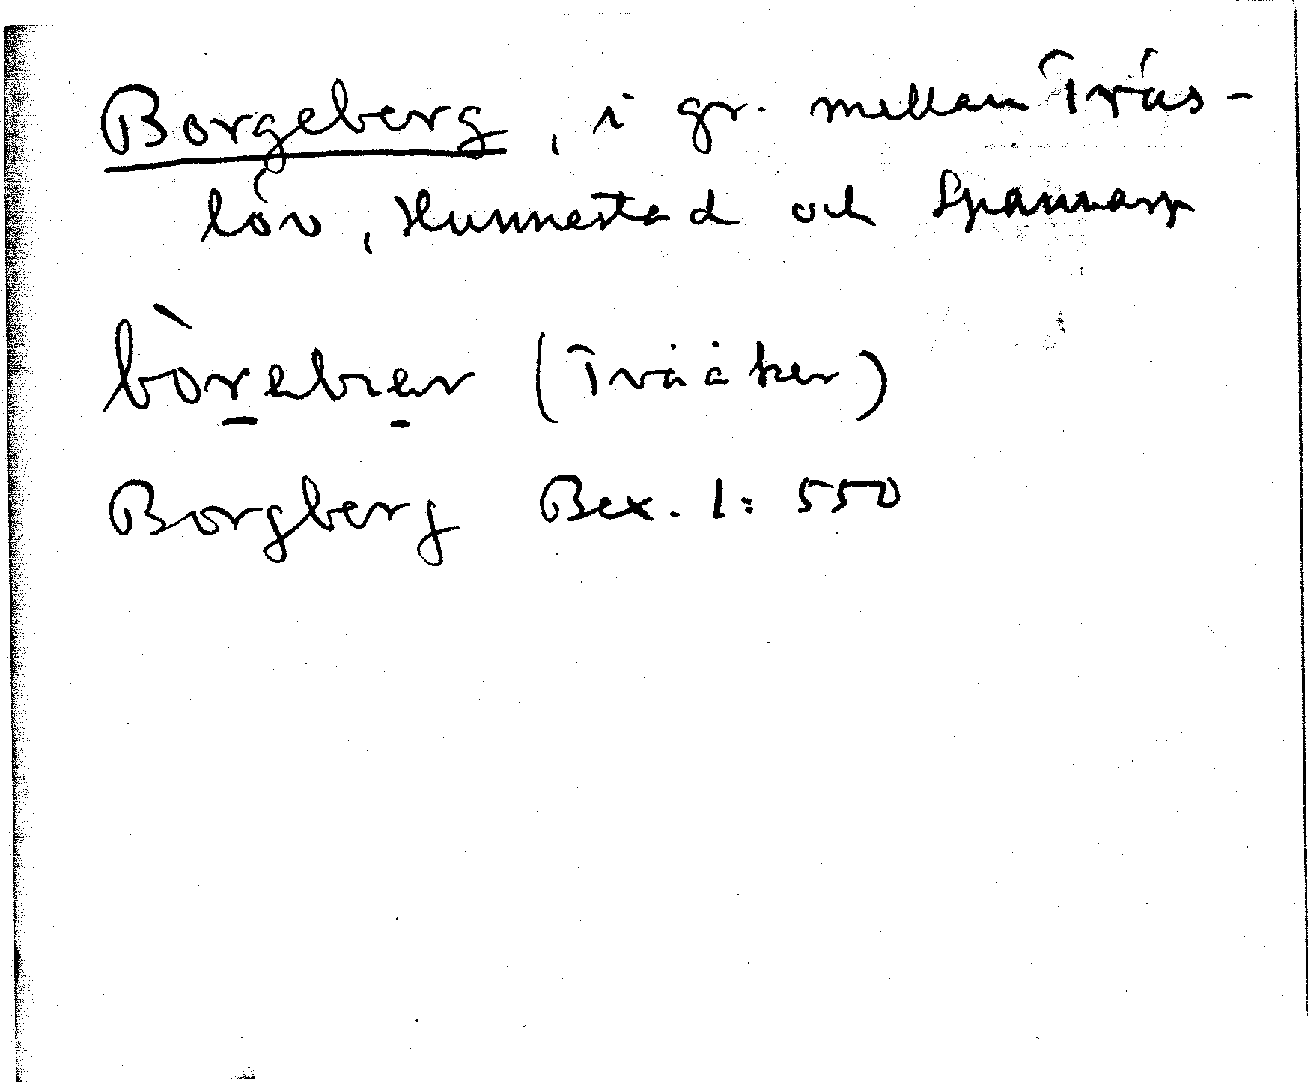 Borgeberg, i gr. mellan Träs-
löv, Hunnestad och Spannarp
bòrebrer (Tvååker)
Borgberg Bex. 1: 550